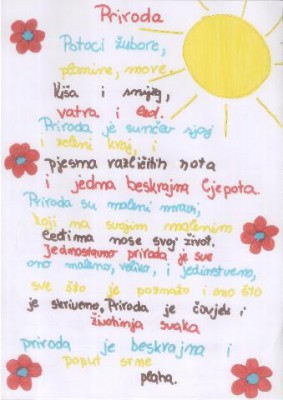 Priroda
Potoci žubore,
planine, more.
Kiša i snijeg,
vatra i led.
Priroda je sunčev sjaj
i zeleni kraj, i
pjesma različitih nota
i jedna beskrajna ljepota.
Priroda su maleni mravi,
koji na svojim malenim
leđima nose svoj život.
Jednostavno priroda je sve
ono maleno, veliko, i jedinstveno,
sve što je poznato i ono što
je skriveno. Priroda je čovjek i
životinja svaka
priroda je beskrajna i
poput srne
plaha.